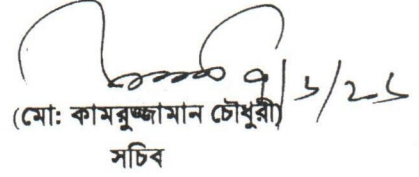 ৭/১/২১
(মো: কামরুজ্জামান চৌধুরী)
সচিব